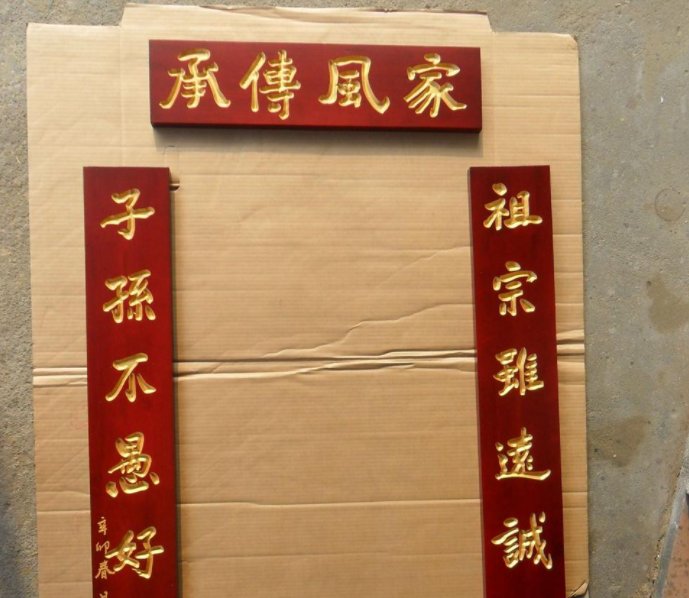 家風傳承
祖宗雖遠誠
子孫不愚好
辛卯春